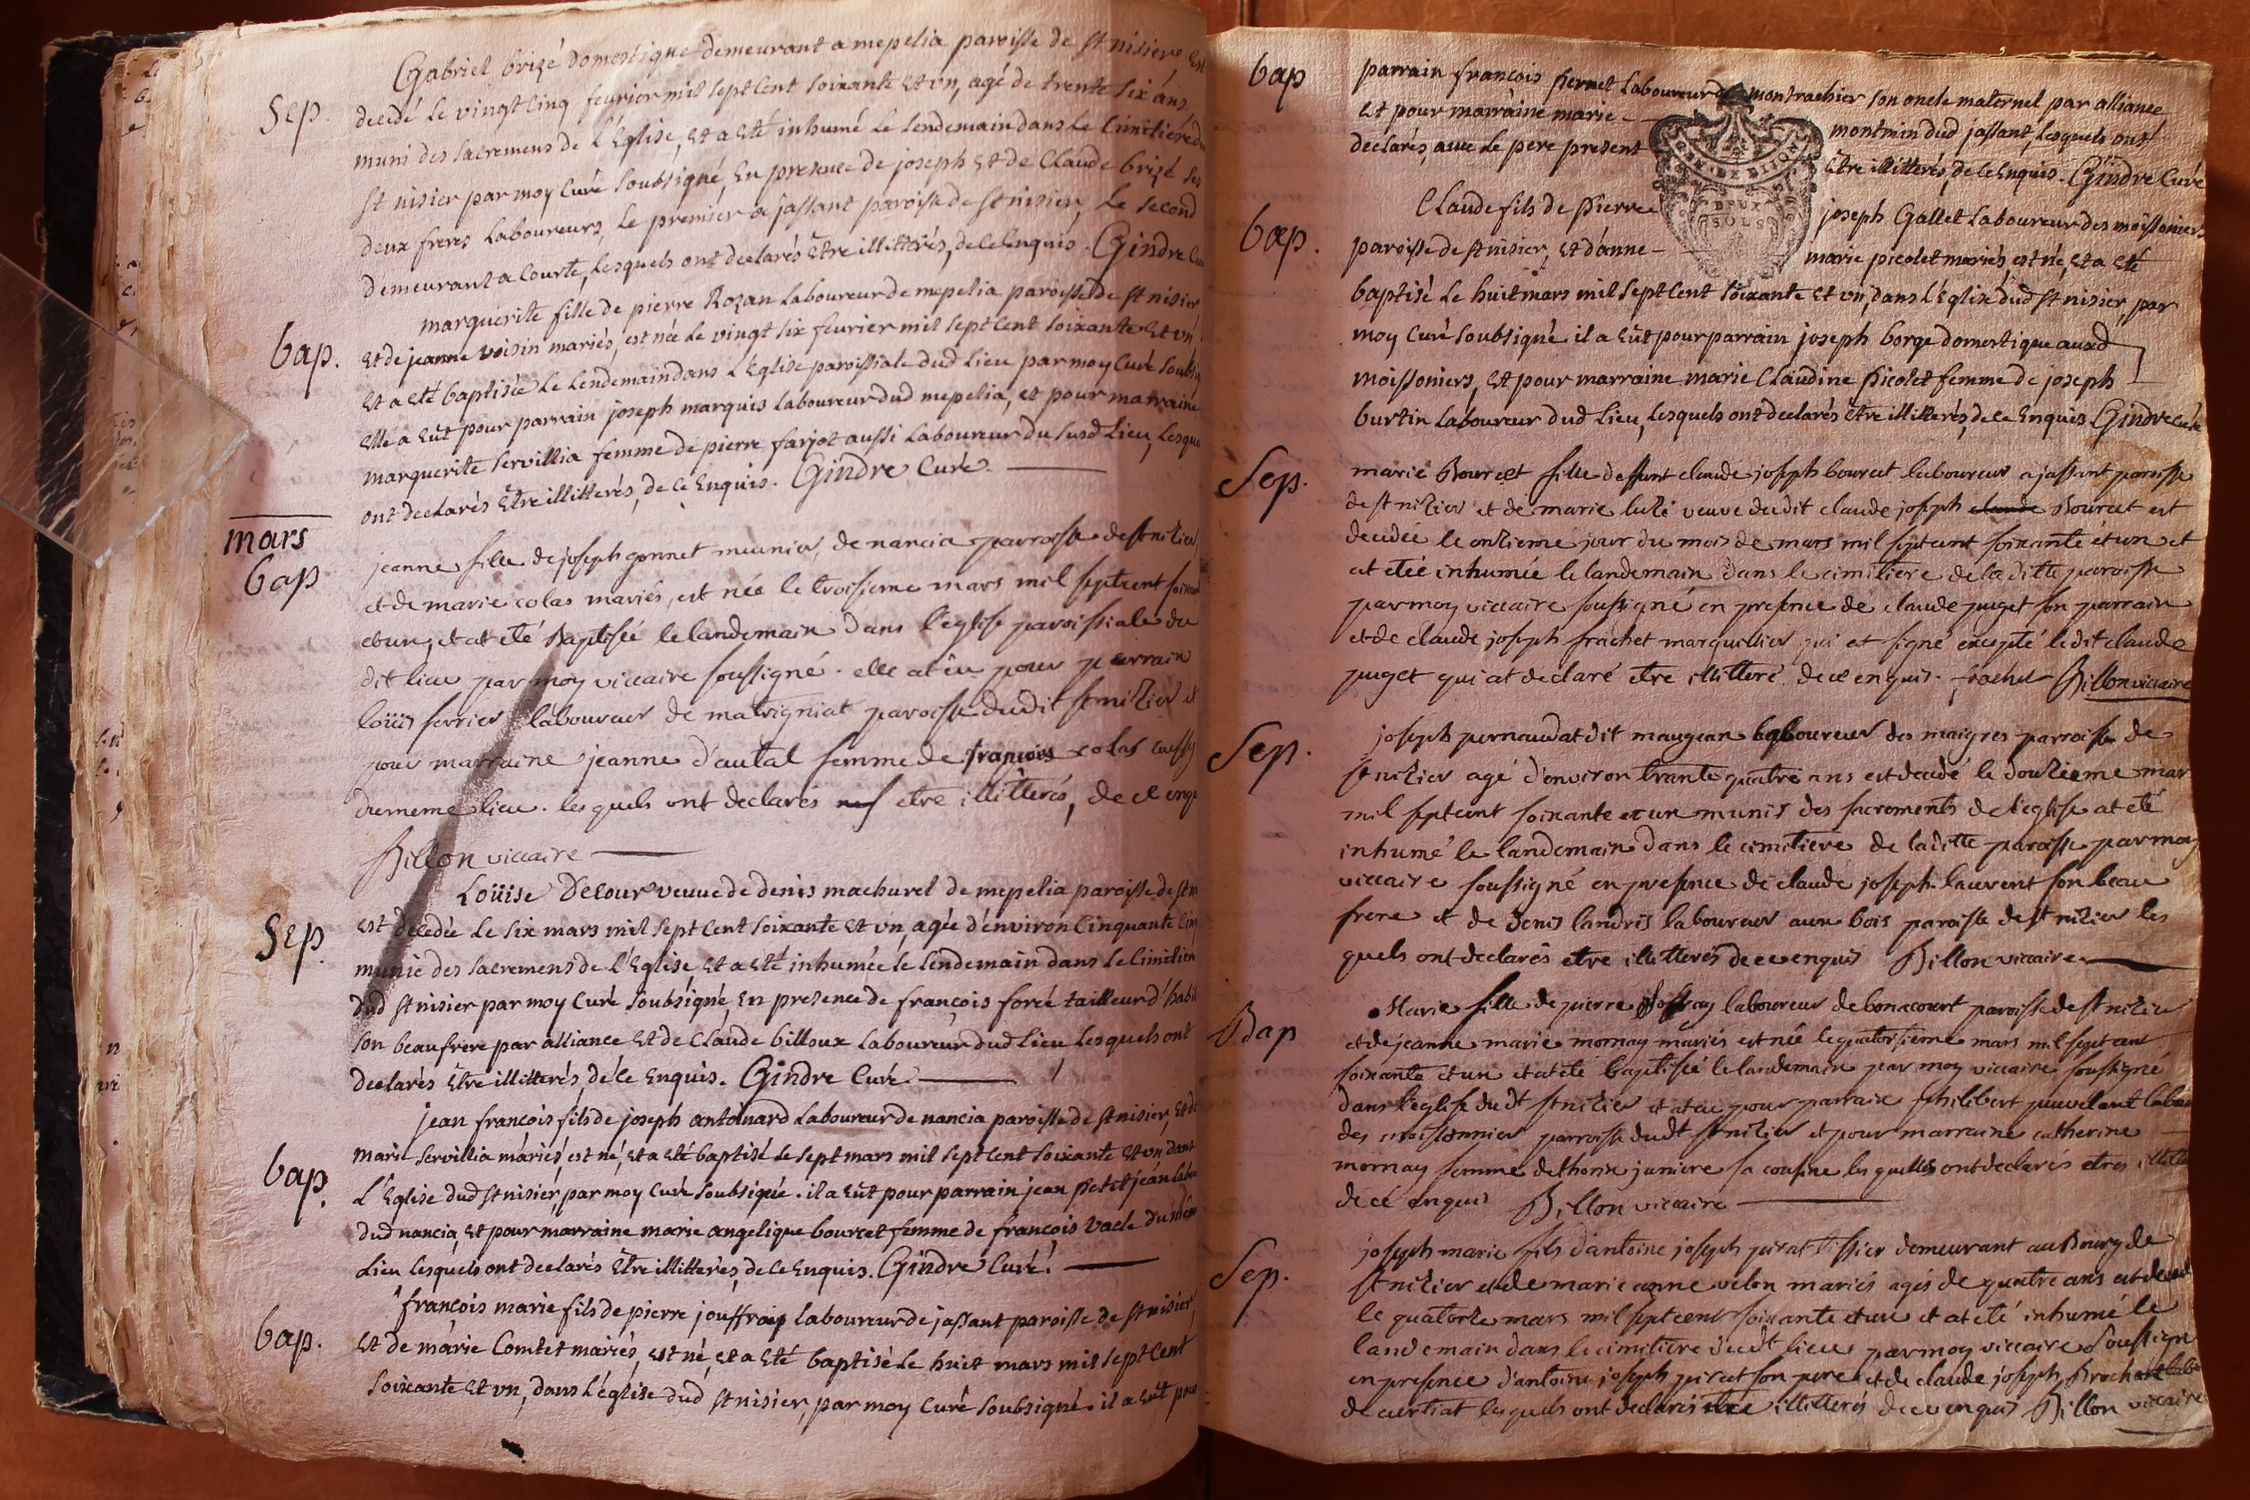 Gabriel brizé domestique demeurant a mepelia paroisse de st nisier, est
Sep. decedé le vingt cinq fevrier mil sept cent soixante et vn, agé de trente six ans
muni des sacremens de l'Eglise, et a eté inhumé le lendemain dans le cimitiere
st nisier par moy curé soubsigné, En presence de joseph et de Claude brizé ses
deux freres laboureurs, le premier a jassant paroisse de st nisier, le second
demeurant a Courte, lesquels ont declarés être illitterés, de ce Enquis. Gindre
marguerite fille de pierre Rozan laboureur de mepelia paroisse de st nisier
bap. et de jeanne voisin mariés, est née le vingt six fevrier mil sept cent soixante et vn
et a eté baptisée le lendemain dans l'Eglise paroissiale dud lieu par moy curé soubs
elle a eût pour parrain joseph marquis laboureur dud mepelia, et pour marraine
marguerite servillia femme de pierre farjot aussi laboureur du susd lieu, lesque
ont declarés être illitterés, de ce Enquis. Gindre Curé.
mars
bap jeanne fille de joseph gonnet meunier, de nancia parroisse de st nizier
et de marie colas mariés, est née le troisieme mars mil septcent soixan
et un, et at eté Baptisée le landemain dans l'eglise paroissiale du
dit lieu par moy viccaire soussigné. elle at eu pour parrain
loüis ferrier laboureur de matrigniat paroisse dudit st nizier et
pour marraine jeanne d'autal femme de françois colas aussy
du meme lieu. les quels ont declarés etre illitterés, de ce enqu
Billon viccaire
Loüise Decour veuve de denis machurel de mepelia paroisse de st n
Sep. est decedée le six mars mil sept cent soixante et vn, agée d'environ cinquante cin
munie des sacremens de l'Eglise et a eté inhumée le lendemain dans le cimitier
dud st nisier par moy curé soubsigné, en presence de françois forêt tailleur d'habi
son beaufrere par alliance et de Claude billoux laboureur dud lieu lesquels ont
declarés être illitterés, de ce enquis. Gindre Curé.
jean françois fils de joseph antoinard laboureur de nancia paroisse de st nisier, et de
bap. marie servillia mariés, est né, et a eté baptisé le sept mars mil sept cent soixante et vn dans
l'Eglise dud st nisier, par moy curé soubsigné. il a eût pour parrain jean petitjean labou
dud nancia, et pour marraine marie angelique bourcet femme de françois vacle du même
lieu lesquels ont declarés être illitterés, de ce enquis. Gindre Curé.
françois marie fils de pierre jouffray laboureur de jassant paroisse de st nisier,
bap. et de marie Comtet mariés, est né, et a eté baptisé le huit mars mil sept cent
soixante et vn, dans l'église dud st nisier, par moy curé soubsigné. il a eût pour
bap parrain françois pernet laboureur de montrachier son oncle maternel par alliance
et pour marraine marie montmin dud jassant, lesquels ont
declarés, avec le pere present être illitterés, de ce Enquis. Gindre Curé
GEN. DE DIJON
DEUX
SOLS
Claude fils de pierre joseph Gallet laboureur des moissoniers
bap. paroisse de st nisier, et d'anne marie picolet mariés, est né, et a eté
baptisé le huit mars mil sept cent soixante et vn, dans l'Eglise dud st nisier, par
moy curé soubsigné il a eût pour parrain joseph borge domestique auxd
moissoniers, et pour marraine marie Claudine Picolet femme de joseph
burtin laboureur dud lieu, lesquels ont declarés être illitterés, de ce Enquis. Gindre Curé
Sep. marie Bourcet fille deffunt claude joseph bourcet laboureur a jassant paroisse
de st nizier et de marie luzi veuve du dit claude joseph claude Bourcet est
decedée le onzieme jour du mois de mars mil septcent soixante et un et
at etéé inhumée le landemain dans le cimitiere de la ditte paroisse
par moy viccaire soussigné en presence de claude puget son parrain
et de claude joseph frachet marguillier qui at signé excepté le dit claude
puget qui at declaré etre illitteré de ce enquis. frachet Billon viccaire
Sep. joseph pernaudat dit maugean laboureur des maigres parroisse de
st nizier agé d'environ trante quatre ans est decedé le douzieme mar
mil septcent soixante et un munis des sacrements de l'eglise at eté
inhumé le landemain dans le cimitiere de laditte paroisse par moy
viccaire soussigné en presence de claude joseph laurent son beau
frere et de denis landris laboureur aux bois paroisse de st nizier les
quels ont declarés etre illitterés de ce enquis Billon viccaire
Bap Marie fille de pierre joffray laboureur de bonacourt paroisse de st nizier
et de jeanne marie mornay mariés est née le quatorsieme mars mil sept cent
soixante et un et at eté baptisée le landemain par moy viccaire soussigné
dans l'eglise du dt st nizier et at eu pour parrain philibert puvelant labou
des moissonnier parroisse dudt st nizier et pour marraine catherine
mornay femme de thomas juniere sa cousine les quelles ont declarés etres illitte
de ce enquis Billon viccaire
Sep. joseph marie fils d'antoine joseph pirat tissier demeurant au Bourg de
st nizier et de marie anne velon mariés agés de quatre ans est decedé
le quatorze mars mil septcent soixante et un et at eté inhumé le
landemain dans le cimitiere dudt lieu par moy viccaire soussigné
en presence d'antoine joseph pirat son pere et de claude joseph Brochet
de curtiat lesquels ont declarés etre illitterés de ce enquis Billon viccaire